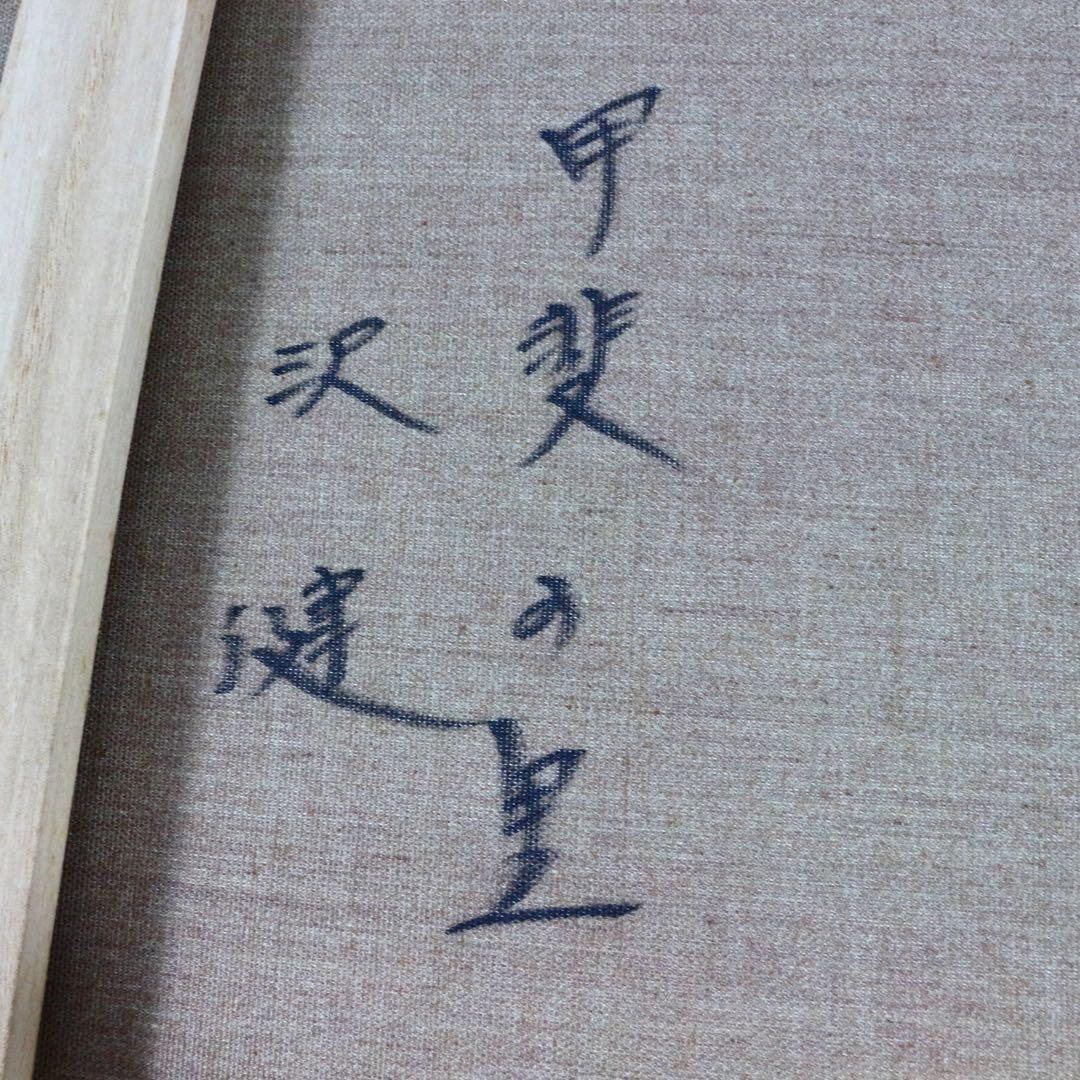 甲斐の里
沢健